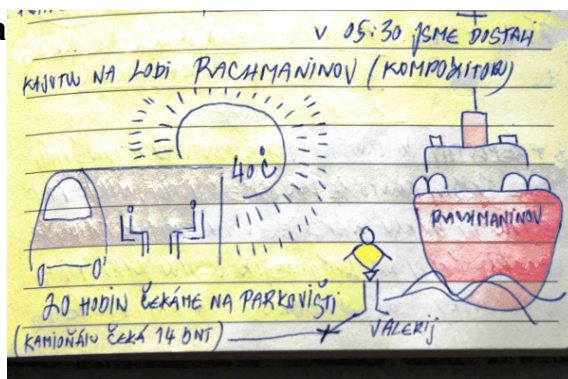 a
v 05:30 JSME DOSTALI
KAJUTU NA LODI RACHMANINOV (KOMPOZITOR)
40 C
RACHMANINOV
20 HODIN ČEKÁME NA PARKOVIŠTI
(KAMIOŇÁCI ČEKÁ 14 DNÍ)
VALERIJ